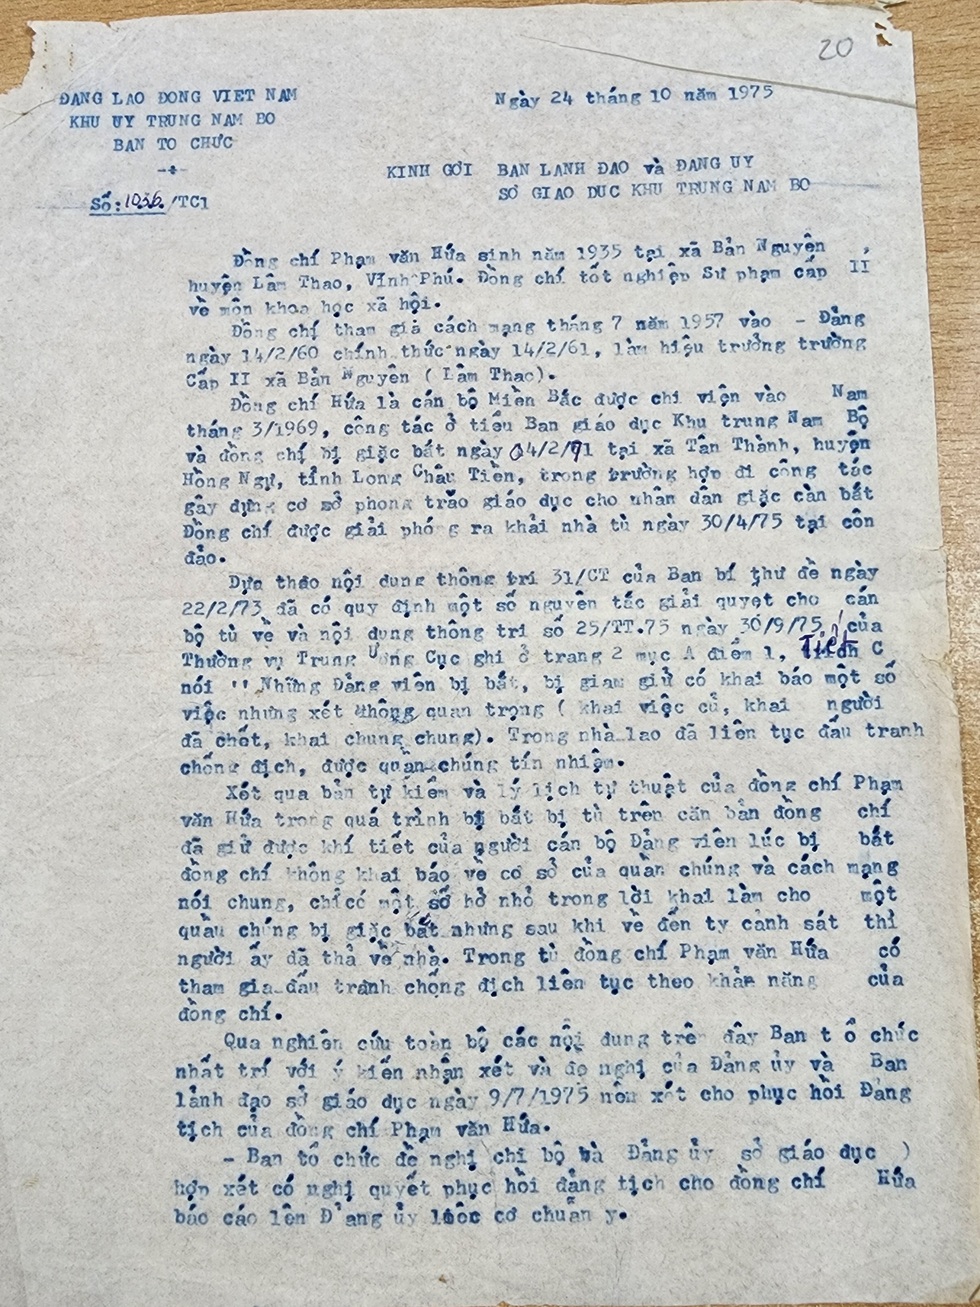 20
ĐANG LAO ĐONG VIET NAM
KHU UY TRUNG NAM BO
BAN TO CHƯC
Số: 1036./TC1
Ngày 24 tháng 10 năm 1975
KINH GƠI BAN LANH ĐAO và ĐANG UY
SƠ GIAO DUC KHU TRUNG NAM BO
Đồng chí Phạm văn Hứa sinh năm 1935 tại xã Bản Nguyên ,
huyện Lâm Thao, Vĩnh Phú. Đồng chí tốt nghiệp Sư phạm cấp II
về môn khoa học xã hội.
Đồng chí tham gia cách mạng tháng 7 năm 1957 vào - Đảng
ngày 14/2/60 chính thức ngày 14/2/61, làm hiệu trưởng trường
Cấp II xã Bản Nguyên ( Lâm Thao).
Đồng chí Hứa là cán bộ Miền Bắc được chi viện vào Nam
tháng 3/1969, công tác ở tiểu Ban giáo dục Khu trung Nam Bộ
và đồng chí bị giặc bắt ngày 04/2/71 tại xã Tân Thành, huyện
Hồng Ngự, tỉnh Long Châu Tiền, trong trường hợp đi công tác
gây dựng cơ sở phong trào giáo dục cho nhân dân giặc càn bắt
Đồng chí được giải phóng ra khải nhà tù ngày 30/4/75 tại côn
đảo.
Dựa thảo nội dung thông tri 31/CT của Ban bí thư đề ngày
22/2/73 đã có quy định một số nguyên tắc giải quyết cho cán
bộ tù về và nội dung thông tri số 25/TT.75 ngày 30/9/75 của
Thường vụ Trung Ương Cục ghi ở trang 2 mục A điểm 1, Tiết C
nói '' Những Đảng viên bị bắt, bị giam giử có khai báo một số
việc nhưng xét không quan trọng ( khai việc củ, khai người
đã chết, khai chung chung). Trong nhà lao đã liên tục đấu tranh
chống địch, được quần chúng tín nhiệm.
Xét qua bản tự kiểm và lý lịch tự thuật của đồng chí Phạm
văn Hứa trong quá trình bị bắt bị tù trên căn bản đồng chí
đã giử được khí tiết của người cán bộ Đảng viên lúc bị bắt
đồng chí không khai báo về cơ sở của quần chúng và cách mạng
nói chung, chỉ có một sơ hở nhỏ trong lời khai làm cho một
quần chúng bị giặc bắt nhưng sau khi về đến ty cảnh sát thì
người ấy đã thả về nhà. Trong tù đồng chí Phạm văn Hứa có
tham gia đấu tranh chống địch liên tục theo khản năng của
đồng chí.
Qua nghiên cứu toàn bộ các nội dung trên đây Ban t ổ chức
nhất trí với ý kiến nhận xét và đọ nghị của Đảng ủy và Ban
lảnh đạo sở giáo dục ngày 9/7/1975 nên xét cho phục hồi Đảng
tịch của đồng chí Phạm văn Hứa.
- Ban tổ chức đề nghị chi bộ và Đảng ủy sở giáo dục )
hợp xét có nghị quyết phục hồi đảng tịch cho đồng chí Hứa
báo cáo lên Đ'ang ủy cơ chuẩn y.